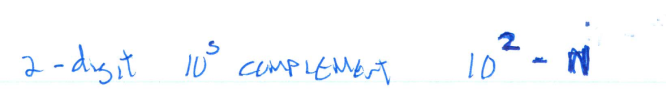 2-digit 10's COMPLEMENT 10² - N